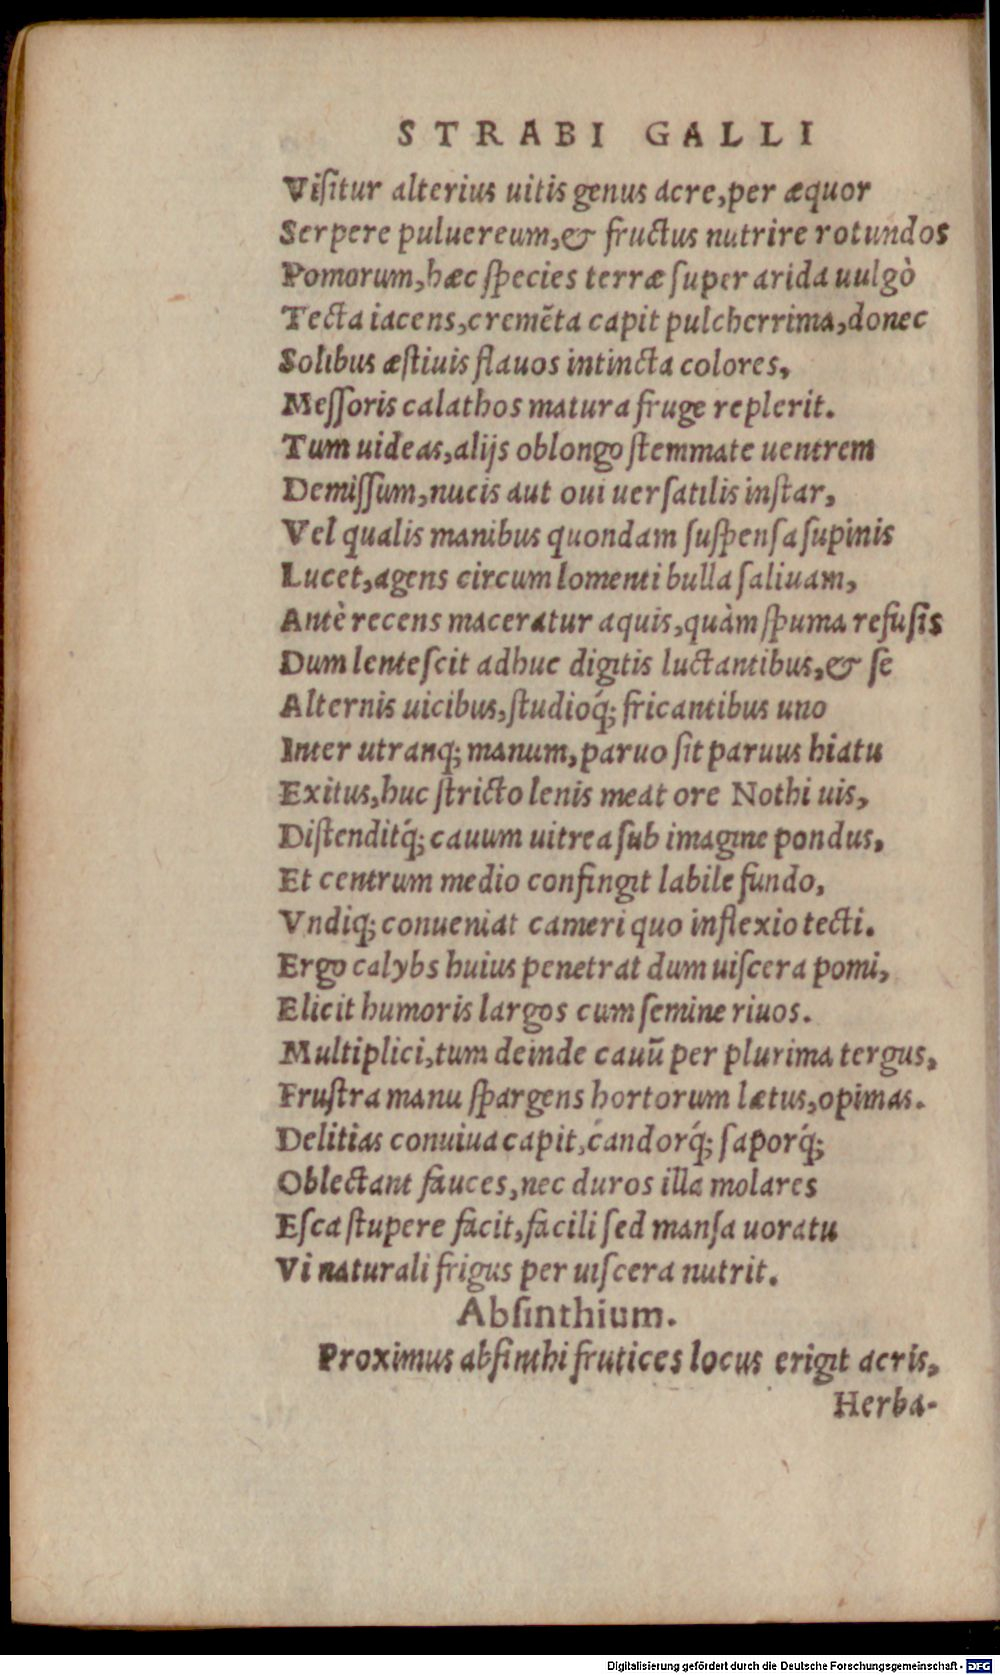 STRABI GALLI
Viſitur alterius uitis genus acre, per æquor
Serpere puluereum, & fructus nutrire rotundos
Pomorum, hæc ſpecies terræ ſuper arida uulgò
Tecta iacens, cremẽta capit pulcherrima, donec
Solibus æſtiuis flauos intincta colores,
Meſſoris calathos matura fruge replerit.
Tum uideas, alijs oblongo ſtemmate uentrem
Demiſſum, nucis aut oui uerſatilis inſtar,
Vel qualis manibus quondam ſuſpenſa ſupinis
Lucet, agens circum lomenti bulla ſaliuam,
Antè recens maceratur aquis, quàm ſpuma refuſis
Dum lenteſcit adhuc digitis luctantibus, & ſe
Alternis uicibus, ſtudioq́; fricantibus uno
Inter utranq; manum, paruo ſit paruus hiatu
Exitus, huc ſtricto lenis meat ore Nothi uis,
Diſtenditq́; cauum uitrea ſub imagine pondus,
Et centrum medio confingit labile fundo,
Vndiq; conueniat cameri quo inflexio tecti.
Ergo calybs huius penetrat dum uiſcera pomi,
Elicit humoris largos cum ſemine riuos.
Multiplici, tum deinde cauũ per plurima tergus,
Fruſtra manu ſpargens hortorum lætus, opimas.
Delitias conuiua capit, candorq́; ſaporq́;
Oblectant fauces, nec duros illa molares
Eſca ſtupere facit, facili ſed manſa uoratu
Vi naturali frigus per uiſcera nutrit.
Abſinthium.
Proximus abſinthi frutices locus erigit acris,
Herba-
Digitalisierung gefördert durch die Deutsche Forschungsgemeinschaft - DFG